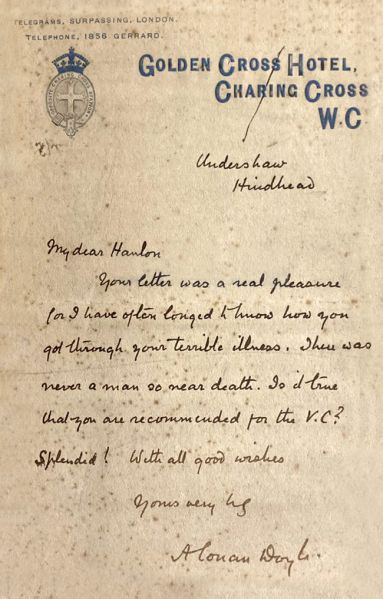 TELEGRAMS, SURPASSING, LONDON.
TELEPHONE, 1856 GERRARD.
GOLDEN CROSS HOTEL,
CHARING CROSS
W.C
Undershaw
Hindhead
My dear Hanlon
Your letter was a real pleasure
for I have often longed to know how you
got through your terrible illness. There was
never a man so near death. Is it true
that you are recommended for the V.C?
Splendid! With all good wishes
Yours very
A Conan Doyle.